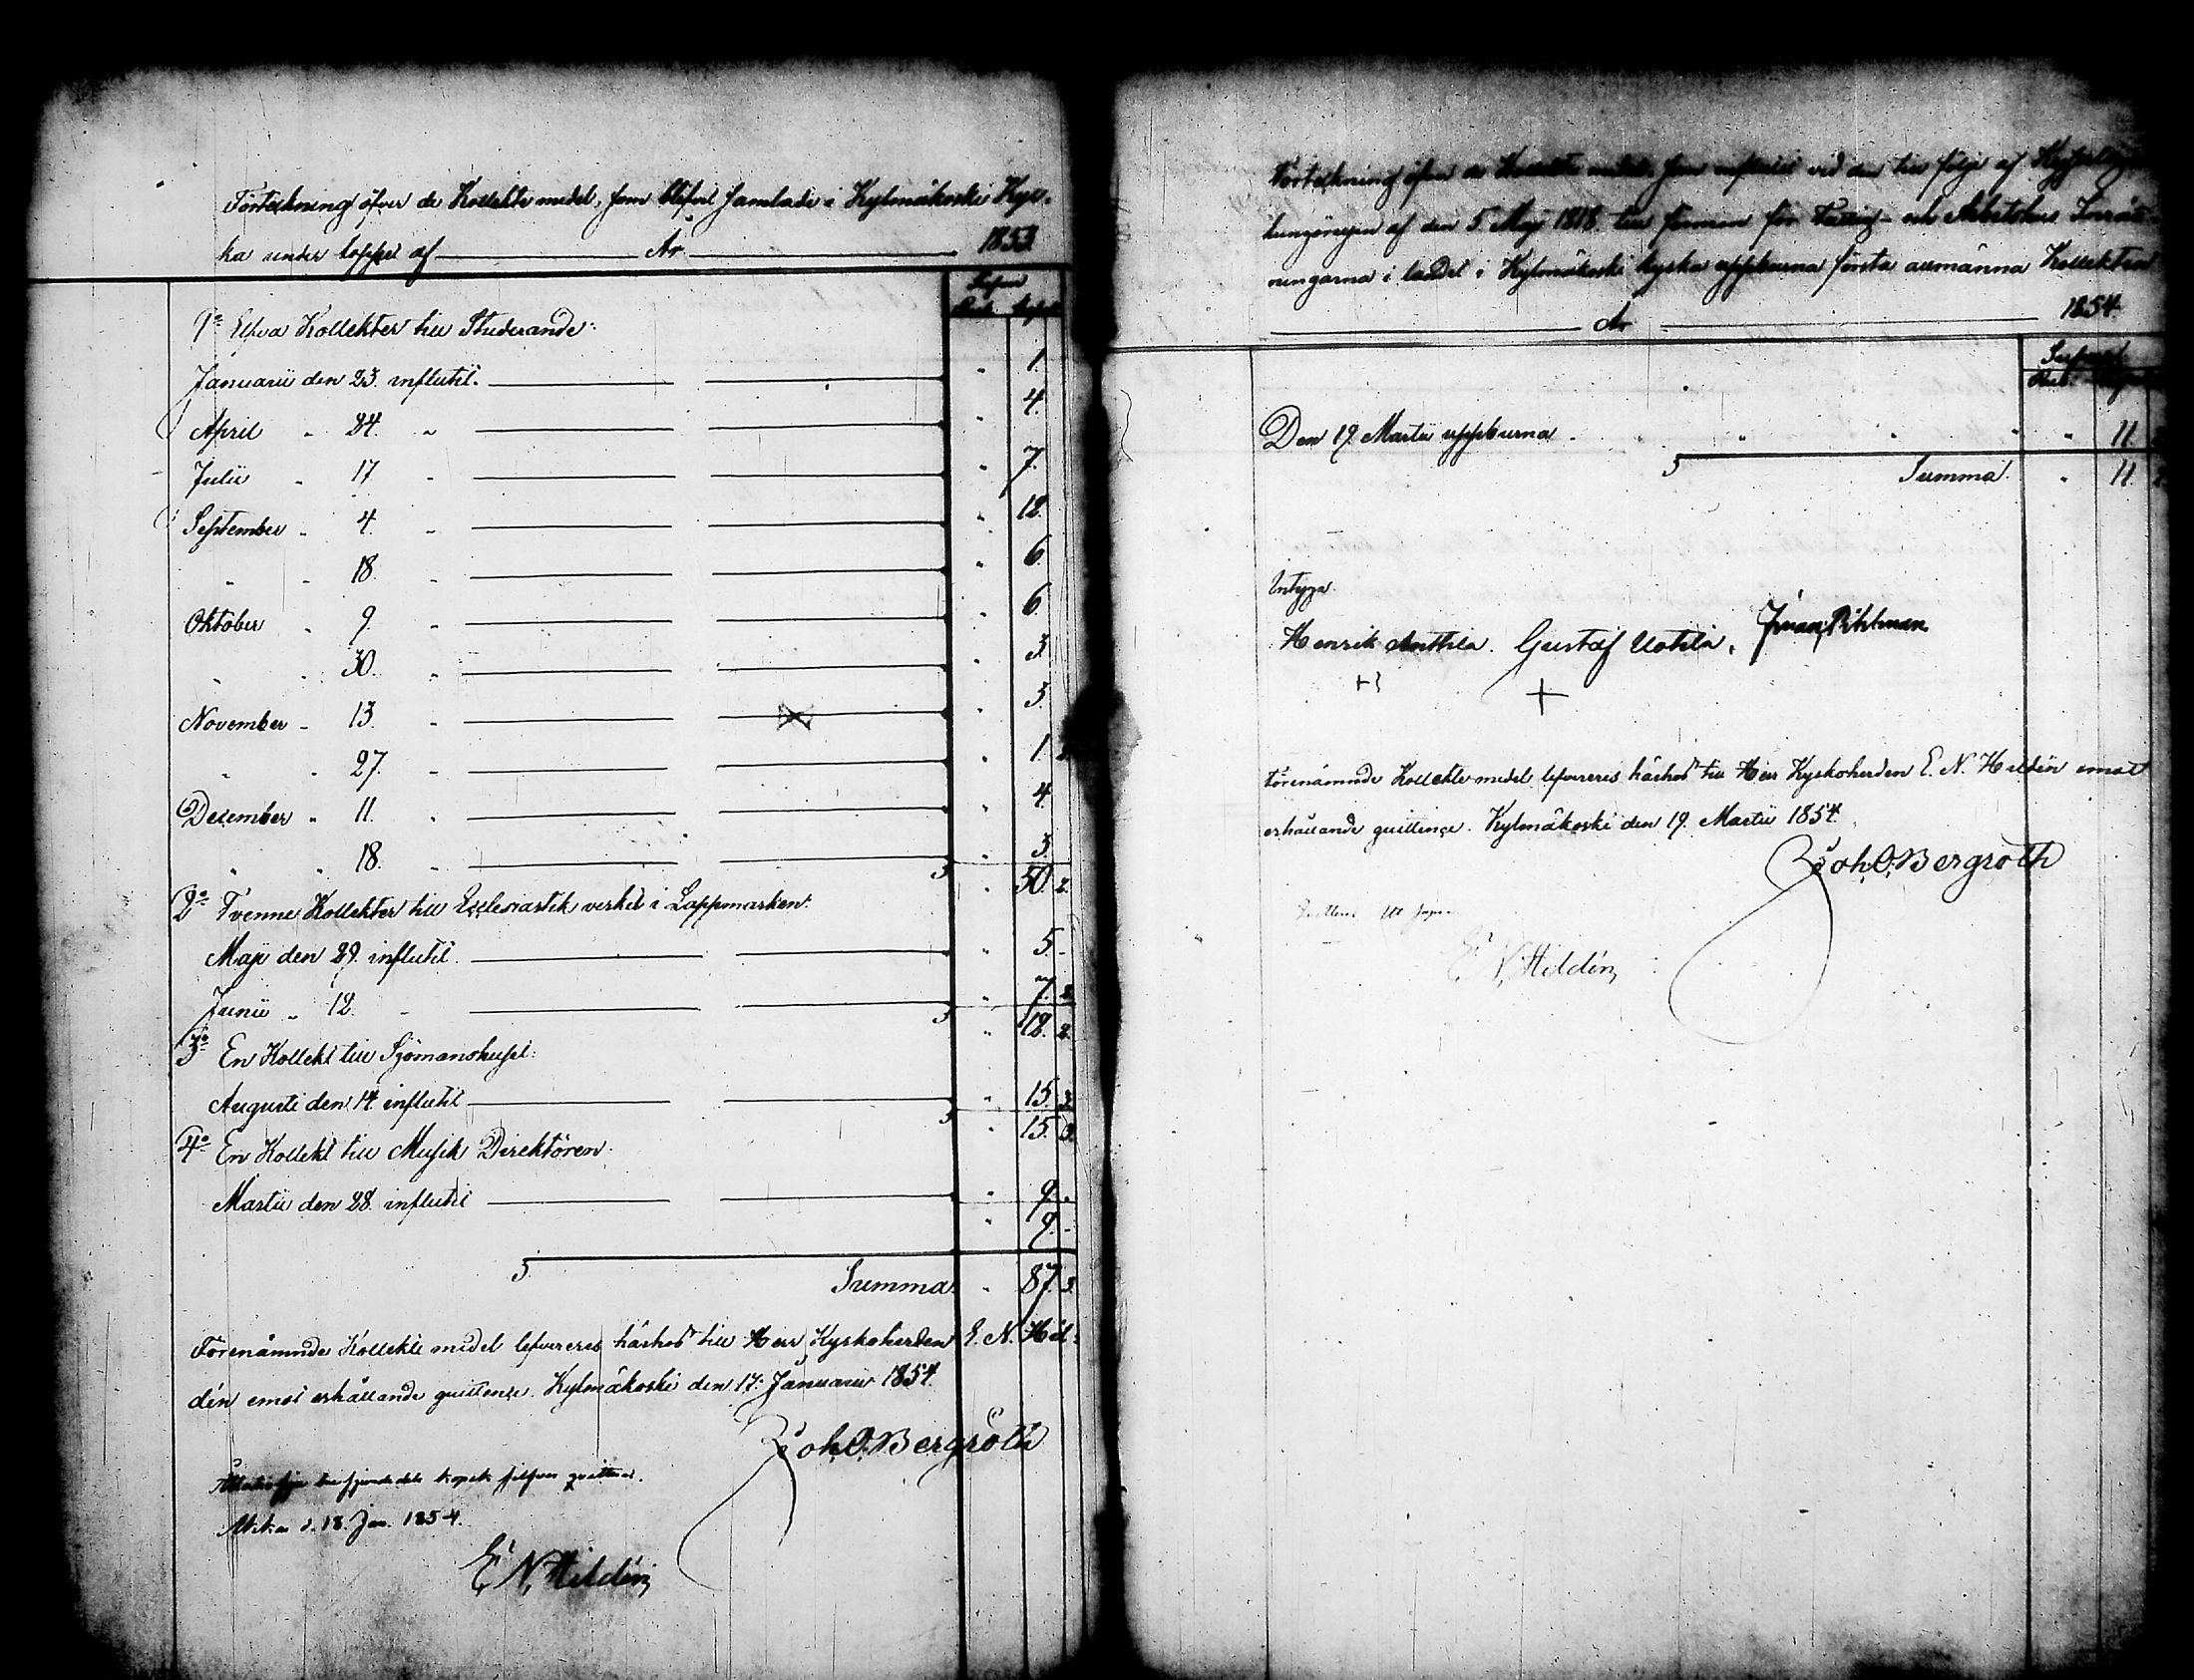 Förtekning öfver de Kollektemedel, som blifvit samlade i Kylmäkoski Kyr-
ka under loppet af År 1853.
Silfver
Rub. Kopek
1o Elfva Kollekter till Studerande:
Januarii den 23. influtit. " 1.
April " 24. " " 4.
Julii " 17 " " 7.
September " 4. " " 12.
" " 18. " " 6.
Oktober " 9. " " 6.
" " 30. " " 3.
November " 13. " " 3.
" " 27. " " 1.
December " 11. " " 4.
" " 18. " " 3.
S " 50 2.
2o Tvenne Kollekter till Ecclesiastik verket i Lappmarken.
Maji den 29. influtit. " 5. -
Junii " 12. " " 7. 2.
S " 12. 2.
3o En Kollekt till Sjömanshuset:
Augusti den 14. influtit " 15. 3.
S " 15. 3.
4o En Kollekt till Musik Direktören.
Martii den 28. influtit " 9. -
" 9. -
S Summa. " 87. 3.
Förenämnde Kollekte medel lefvereres härhos till Herr Kyrkoherden E. N. Hil-
dén emot erhållande quittence. Kylmäkoski den 17. Januarii 1854.
Joh. O. Bergroth
Åttatiosju tre fjerndedels kopek silfver quitteras.
Akkas d. 18. Jan. 1854.
E. N. Hildén
Förtekning öfver de Kollekte medel, som influtit vid den till följe af
kungörelsen af den 5. Maj 1818. till förmon för Fattig- och Arbetshus Inrätt-
ningarna i landet i Kylmäkoski kyrka uppburna första allmänna Kollekten
År 1854.
Silfver
Rub. Kopek
Den 19. Martii uppburna " " " " " 11
S Summa. " 11.
Intyga.
Henrik Anttila. Gustaf Uotila. Johan Pihlman.
+ +
Förenämnde Kollekte medel lefvereres härhos till Herr Kyrkoherden E. N. Hildén emot
erhållande quittence. Kylmäkoski den 19. Martii 1854.
Joh. O. Bergroth
E. N. Hildén